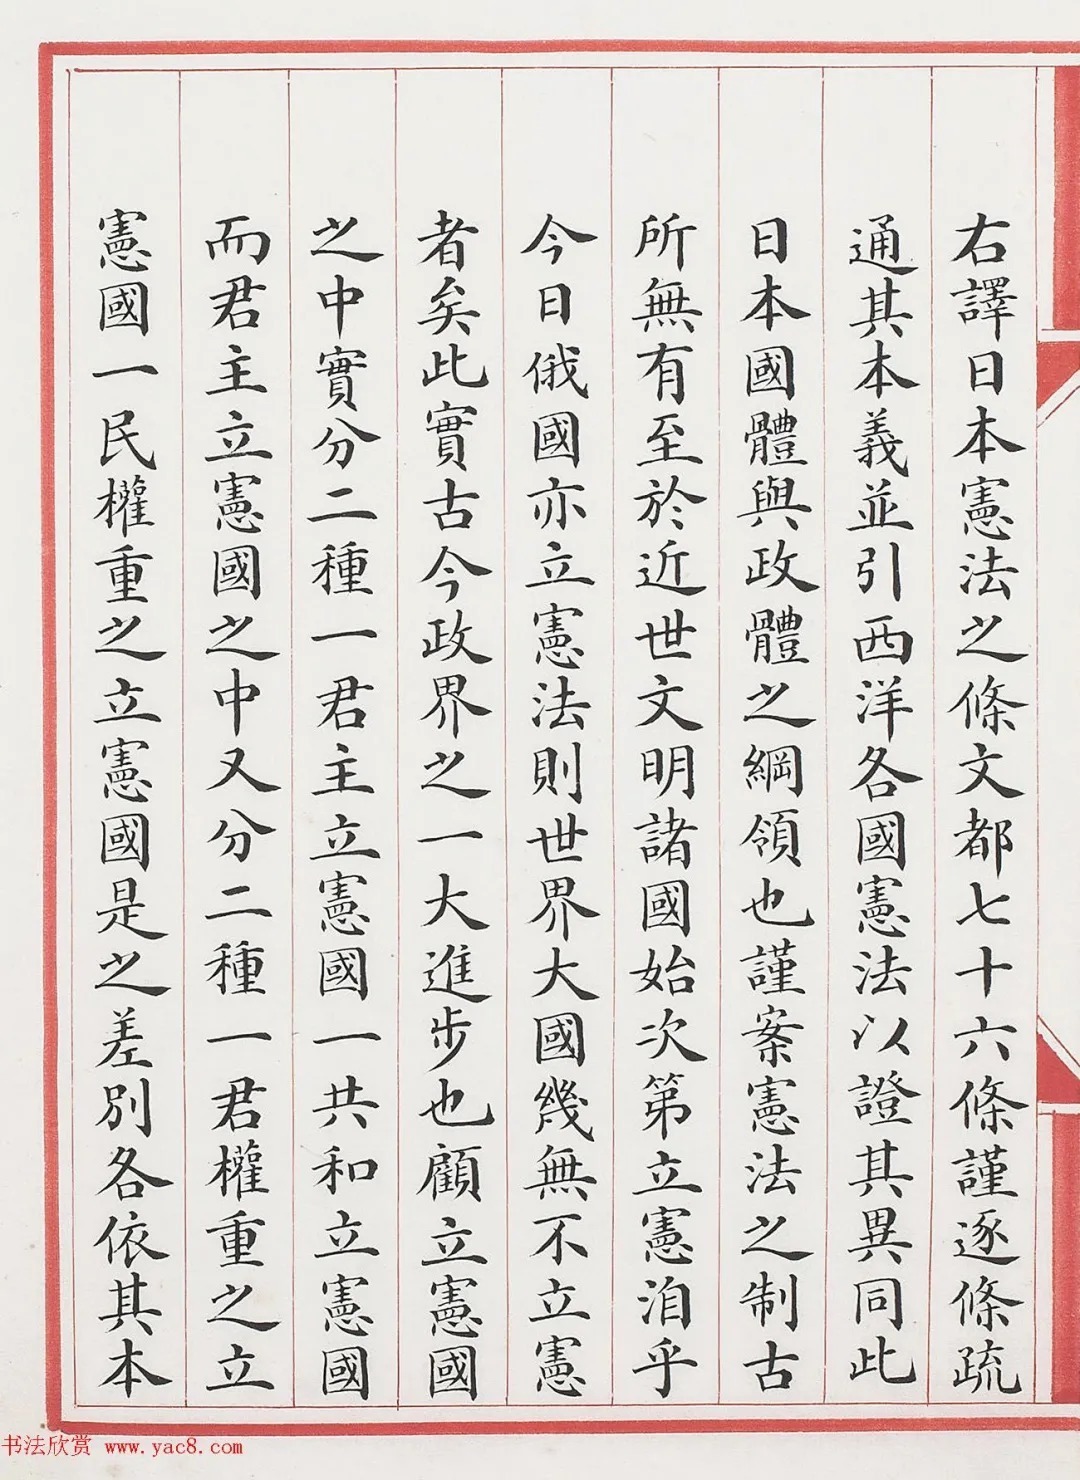 右譯日本憲法之條文都七十六條謹逐條疏
通其本義並引西洋各國憲法以證其異同此
日本國體與政體之綱領也謹案憲法之制古
所無有至於近世文明諸國始次第立憲洎乎
今日俄國亦立憲法則世界大國幾無不立憲
者矣此實古今政界之一大進步也顧立憲國
之中實分二種一君主立憲國一共和立憲國
而君主立憲國之中又分二種一君權重之立
憲國一民權重之立憲國是之差別各依其本
书法欣赏 www.yac8.com